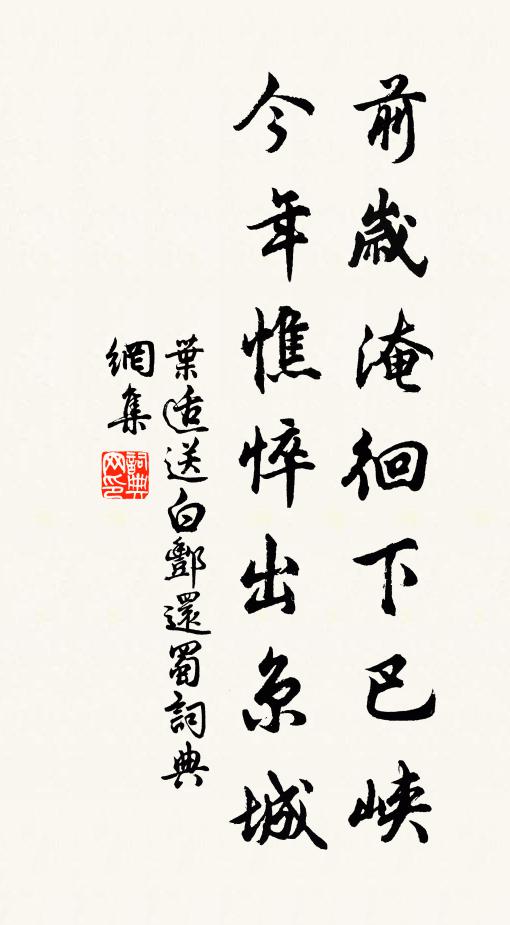 前歲淹徊下巴峽
今年憔悴出京城
葉适送白酆還蜀詞典
網集
詞典網印